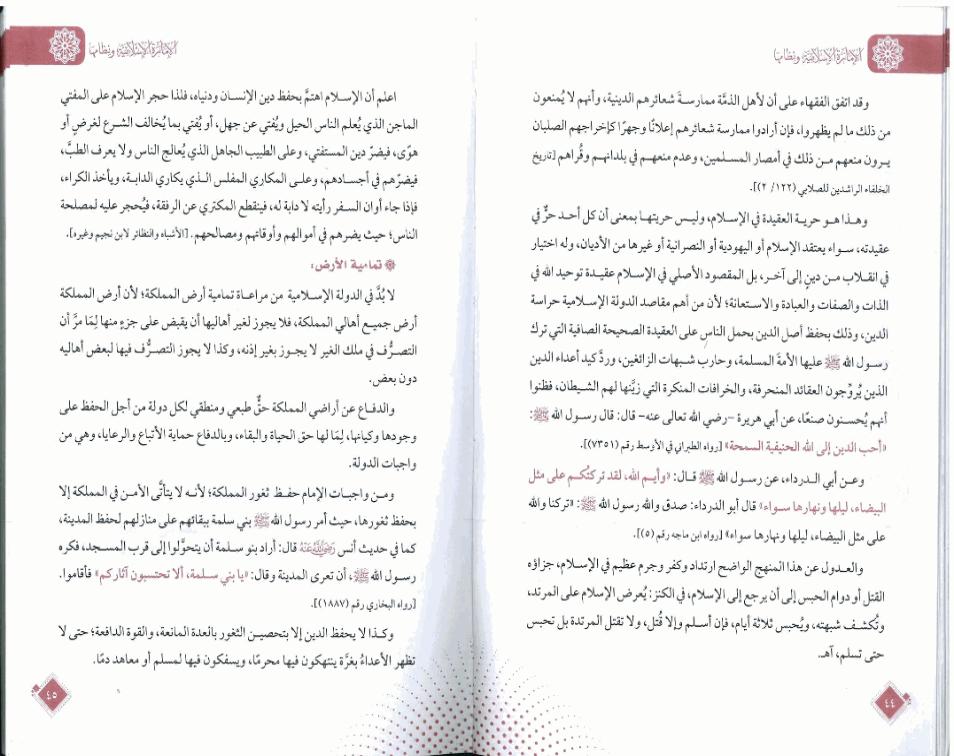 الإمارة الإسلامية ونظامها
وقد اتفق الفقهاء على أن لأهل الذمَّة ممارسةَ شعائرهم الدينية، وأنهم لا يُمنعون
من ذلك ما لم يظهروا، فإن أرادوا ممارسة شعائرهم إعلانًا وجهرًا كإخراجهم الصلبان
يـرون منعهم مـن ذلك في أمصار المسلمين، وعدم منعهـم في بلدانهـم وقُراهم [تاريخ
الخلفاء الراشدين للصلابي (١٢٢/ ٢)].
وهـذا هـو حريـة العقيدة في الإسلام، وليـس حريتهـا بمعنى أن كل أحـد حرٌّ في
عقيدته، سـواء يعتقد الإسلام أو اليهودية أو النصرانية أو غيرها من الأديان، وله اختيار
في انقلاب مـن دينٍ إلى آخـر، بل المقصود الأصلي في الإسلام عقيـدة توحيد الله في
الذات والصفات والعبادة والاستعانة؛ لأن من أهم مقاصد الدولة الإسلامية حراسة
الدين، وذلك بحفظ أصل الدين بحمل الناس على العقيدة الصحيحة الصافية التي ترك
رسـول الله ﷺ عليها الأمةَ المسلمة، وحارب شبهات الزائغين، وردَّ كيد أعداء الدين
الذين يُروِّجون العقائد المنحرفة، والخرافات المنكرة التي زيَّنها لهم الشيطان، فظنوا
أنهم يُحسنون صنعًا، عن أبي هريرة -رضي الله تعالى عنه- قال: قال رسول الله ﷺ:
«أحب الدين إلى الله الحنيفية السمحة» [رواه الطبراني في الأوسط رقم (٧٣٥١)].
وعـن أبي الـدرداء، عن رسـول الله ﷺ قـال: «وأيـم الله، لقد تركتُكـم على مثل
البيضاء، ليلها ونهارها سـواء» قال أبو الدرداء: صدق والله رسول الله ﷺ: «تركنا والله
على مثل البيضاء، ليلها ونهارها سواء» [رواه ابن ماجه رقم (٥)].
والعـدول عن هذا المنهج الواضح ارتداد وكفر وجرم عظيم في الإسلام، جزاؤه
القتل أو دوام الحبس إلى أن يرجع إلى الإسلام، في الكنز: يُعرض الإسلام على المرتد،
وتُكشـف شبهته، ويُحبس ثلاثة أيام، فإن أسلم وإلا قُتل، ولا تقتل المرتدة بل تحبس
حتى تسلم، آهـ.
٤٤
الإمارة الإسلامية ونظامها
اعلم أن الإسلام اهتمَّ بحفظ دين الإنسان ودنياه، فلذا حجر الإسلام على المفتي
الماجن الذي يُعلم الناس الحيل ويُفتي عن جهل، أو يُفتي بما يُخالف الشرع لغرضٍ أو
هوًى، فيضرُّ دين المستفتي، وعلى الطبيب الجاهل الذي يُعالج الناس ولا يعرف الطبَّ،
فيضرُّهم في أجسادهم، وعلـى المكاري المفلس الـذي يكاري الدابـة، ويأخذ الكراء،
فإذا جاء أوان السفر رأيته لا دابة له، فينقطع المكتري عن الرفقة، فيُحجر عليه لمصلحة
الناس؛ حيث يضرهم في أموالهم وأوقاتهم ومصالحهم. [الأشباه والنظائر لابن نجيم وغيره].
تمامية الأرض:
لا بُدَّ في الدولة الإسلامية من مراعاة تمامية أرض المملكة؛ لأن أرض المملكة
أرض جميـع أهالي المملكة، فلا يجوز لغير أهاليها أن يقبض على جزءٍ منها لِمَا مرَّ أن
التصرُّف في ملك الغير لا يجـوز بغير إذنه، وكذا لا يجوز التصـرُّف فيها لبعض أهاليه
دون بعض.
والدفـاع عن أراضي المملكة حقٌّ طبعي ومنطقي لكل دولة من أجل الحفظ على
وجودها وكيانها، لِمَا لها حق الحياة والبقاء، وبالدفاع حماية الأتباع والرعايا، وهي من
واجبات الدولة.
ومـن واجبات الإمام حفـظ ثغور المملكة؛ لأنـه لا يتأتَّى الأمن في المملكة إلا
بحفظ ثغورها، حيث أمر رسول الله ﷺ بني سلمة ببقائهم على منازلهم لحفظ المدينة،
كما في حديث أنس رَضِيَ اللَّهُ عَنْهُ قال: أراد بنو سلمة أن يتحوَّلوا إلى قرب المسجد، فكره
رسـول الله ﷺ، أن تعرى المدينة وقال: «يا بني سلمة، ألا تحتسبون آثاركم» فأقاموا.
[رواه البخاري رقم (١٨٨٧)].
وكـذا لا يحفظ الدين إلا بتحصين الثغور بالعدة المانعة، والقوة الدافعة؛ حتى لا
تظهر الأعداءُ بغرَّة ينتهكون فيها محرمًا، ويسفكون فيها لمسلم أو معاهد دمًا.
٤٥